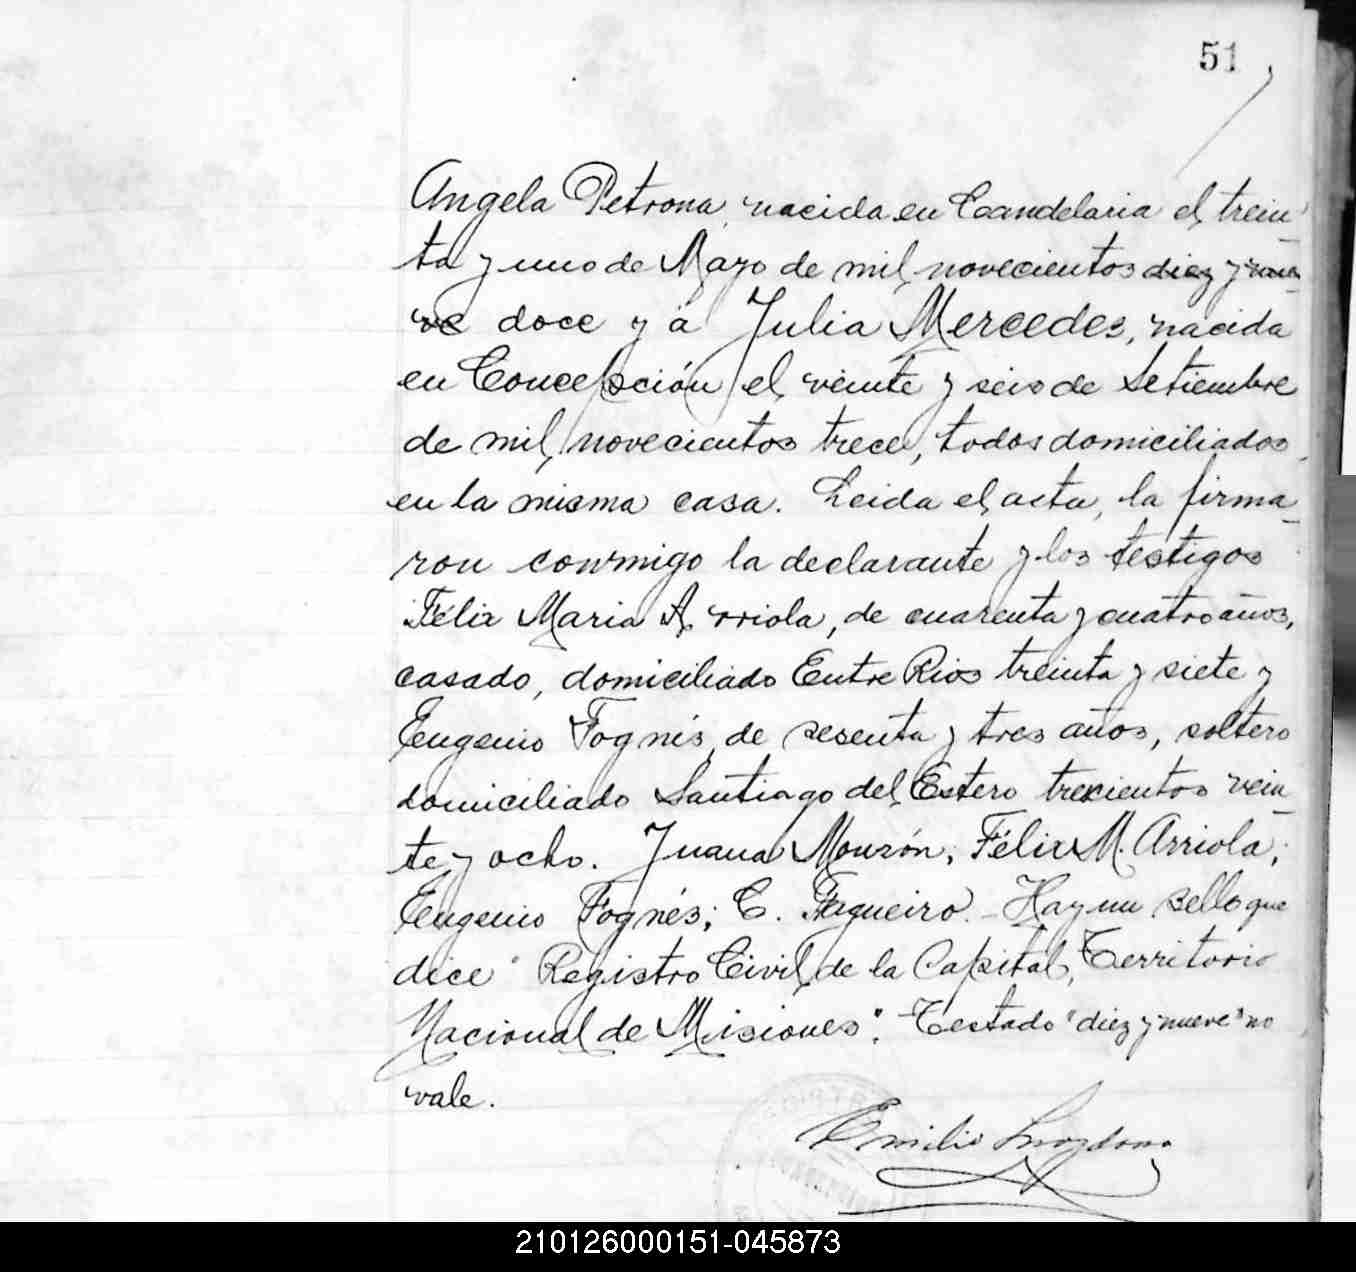 51
Angela Petrona, nacida en Candelaria el trein-
ta y uno de Mayo de mil novecientos diez y nue-
ve doce y á Julia Mercedes, nacida
en Concepción el veinte y seis de Setiembre
de mil novecientos trece, todos domiciliados
en la misma casa. Leida el acta, la firma-
ron conmigo la declarante y los testigos
Félix Maria Arriola, de cuarenta y cuatro años,
casado, domiciliado Entre Rios treinta y siete y
Eugenio Fognés, de sesenta y tres años, soltero
domiciliado Santiago del Estero trecientos vein-
te y ocho. Juana Monzón; Félix M. Arriola;
Eugenio Fognés; C. Fagueiro. - Hay un sello que
dice "Registro Civil de la Capital, Territorio
Nacional de Misiones". - Testado "diez y nueve" no
vale.
Emilio
210126000151-045873